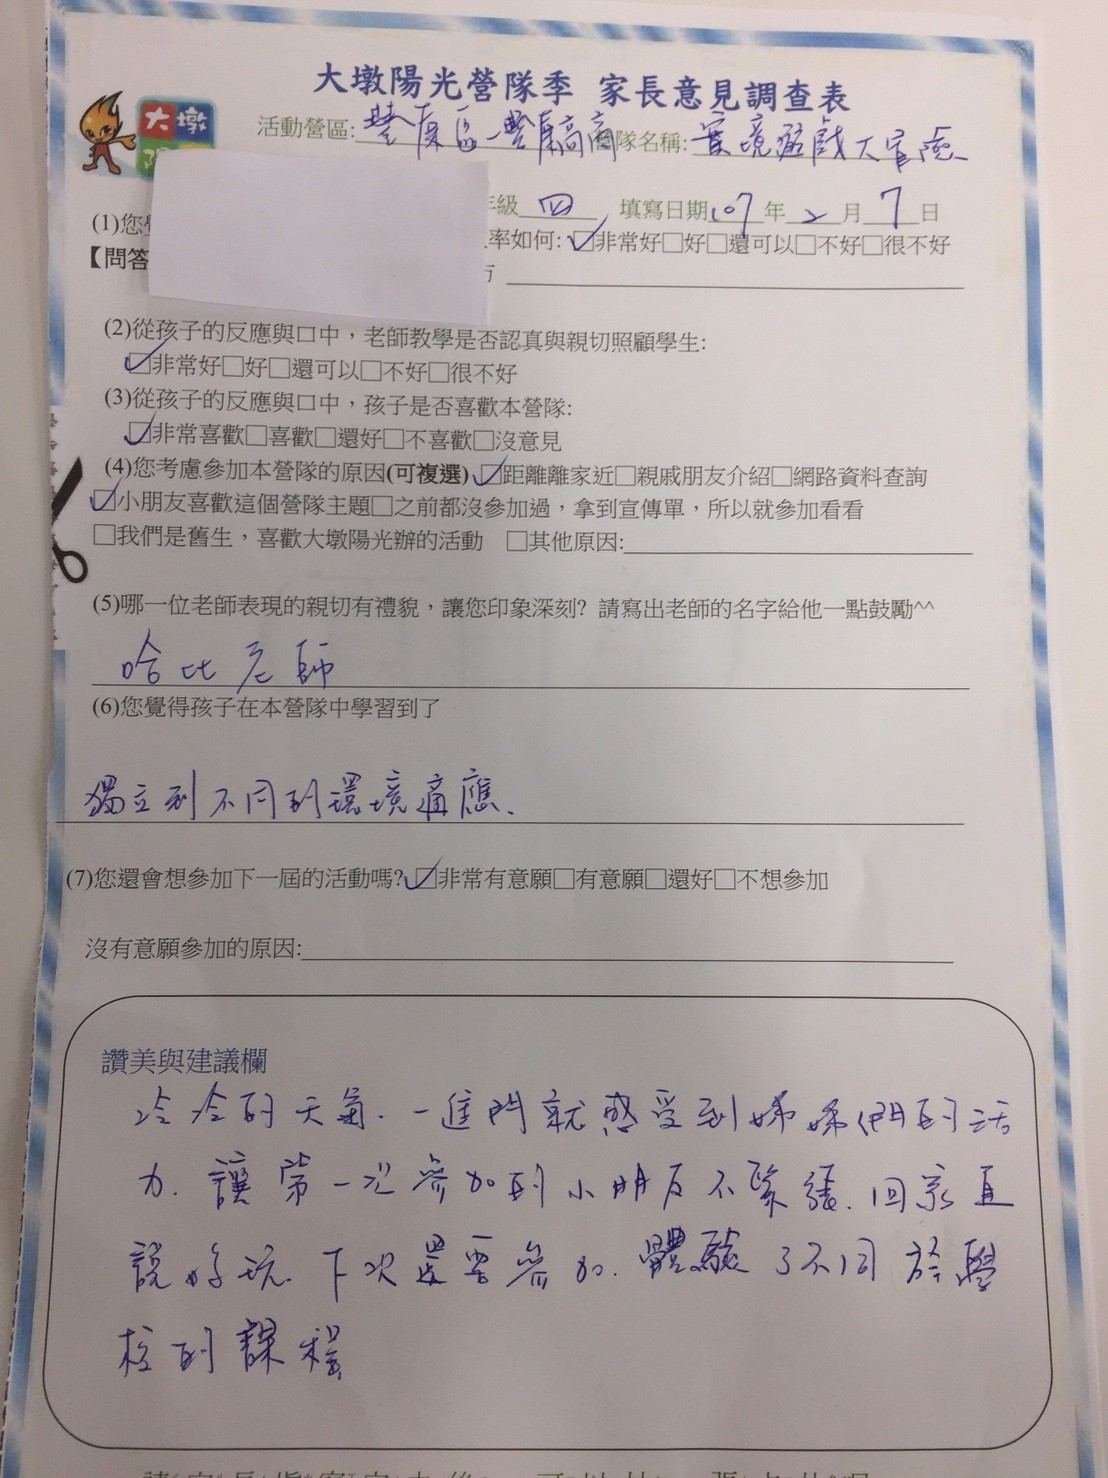 大墩陽光營隊季 家長意見調查表
大墩
活動營區:豐原區豐原高商 隊名稱:實境遊戲大冒險
年級 四 填寫日期107年2月7日
(1)您
率如何:☑非常好□好□還可以□不好□很不好
【問答
(2)從孩子的反應與口中,老師教學是否認真與親切照顧學生:
☑非常好□好□還可以□不好□很不好
(3)從孩子的反應與口中,孩子是否喜歡本營隊:
☑非常喜歡□喜歡□還好□不喜歡□沒意見
(4)您考慮參加本營隊的原因(可複選)☑距離離家近□親戚朋友介紹□網路資料查詢
☑小朋友喜歡這個營隊主題□之前都沒參加過,拿到宣傳單,所以就參加看看
□我們是舊生,喜歡大墩陽光辦的活動 □其他原因:
(5)哪一位老師表現的親切有禮貌,讓您印象深刻? 請寫出老師的名字給他一點鼓勵^^
哈比老師
(6)您覺得孩子在本營隊中學習到了
獨立到不同的環境適應、
(7)您還會想參加下一屆的活動嗎?☑非常有意願□有意願□還好□不想參加
沒有意願參加的原因:
讚美與建議欄
冷冷的天氣.一進門就感受到姊姊們的活
力.讓第一次參加的小朋友不緊張.回家直
說好玩.下次還要參加.體驗了不同於學
校的課程